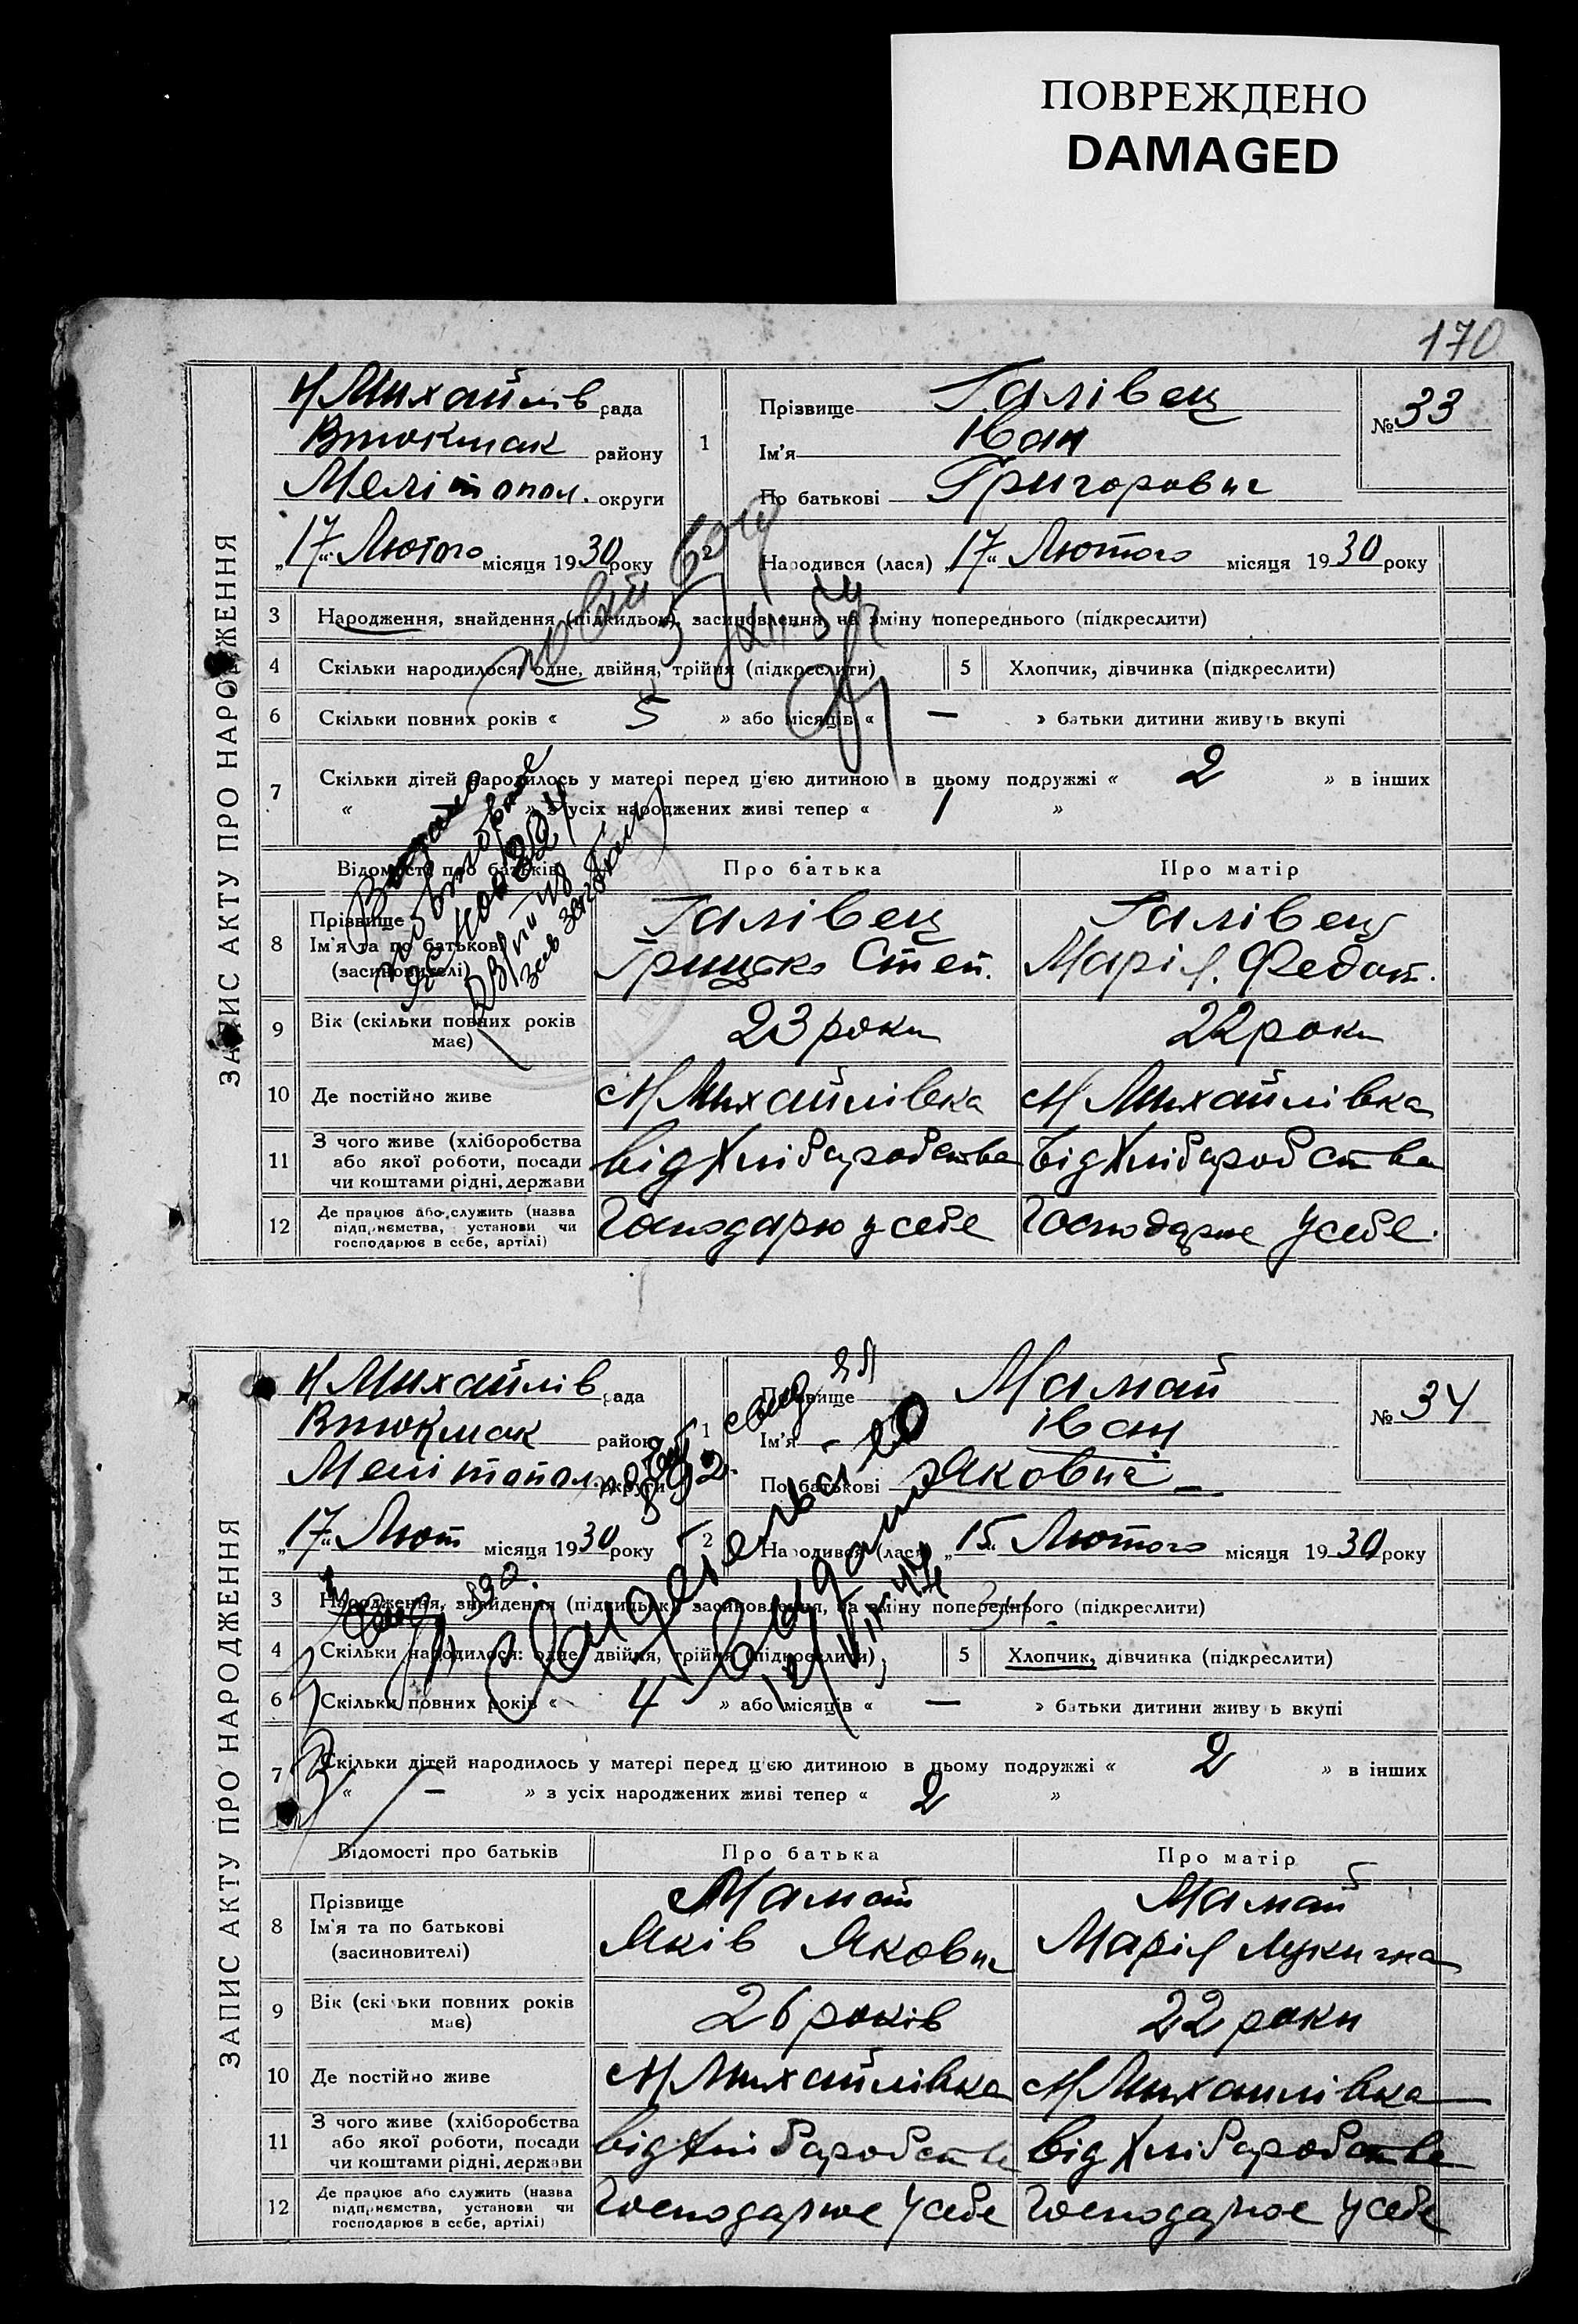 ПОВРЕЖДЕНО
DAMAGED
170
ЗАПИС АКТУ ПРО НАРОДЖЕННЯ
Н Михайлів рада
Втокмак району
Мелітопол. округи
1
Прізвище Галівец
Ім'я Іван
По батькові Григорович
№ 33
„17“ Лютого місяця 1930 року
2
Народився (лася) „17“ Лютого місяця 1930 року
3 Народження, знайдення (підкидьок), засиновлення, на зміну попереднього (підкреслити)
4 Скільки народилося: одне, двійня, трійня (підкреслити) 5 Хлопчик, дівчинка (підкреслити)
6 Скільки повних років « 5 » або місяців « — » батьки дитини живуть вкупі
7 Скільки дітей народилось у матері перед цією дитиною в цьому подружжі « 2 » в інших
« » з усіх народжених живі тепер « 1 »
Відомості про батьків Про батька Про матір
8 Прізвище
Ім'я та по батькові
(засиновителі)
Галівец
Грицько Степ.
Галівец
Марія. Федот.
9 Вік (скільки повних років має) 23 роки 22 роки
10 Де постійно живе Н Михайлівка Н Михайлівка
11 З чого живе (хліборобства
або якої роботи, посади
чи коштами рідні, держави
від Хліборобства від Хліборобства
12 Де працює або служить (назва
підприємства, установи чи
господарює в себе, артілі)
Господарю у себе Господарює у себе.
ЗАПИС АКТУ ПРО НАРОДЖЕННЯ
Н Михайлів рада
Втокмак району
Мелітопол. округи
1
Прізвище Мамай
Ім'я Іван
По батькові Якович
№ 34
„17“ Лют місяця 1930 року
2
Народився (лася) „15“ Лютого місяця 1930 року
3 Народження, знайдення (підкидьок), засиновлення, на зміну попереднього (підкреслити)
4 Скільки народилося: одне, двійня, трійня (підкреслити) 5 Хлопчик, дівчинка (підкреслити)
6 Скільки повних років « 4 » або місяців « — » батьки дитини живуть вкупі
7 Скільки дітей народилось у матері перед цією дитиною в цьому подружжі « 2 » в інших
« — » з усіх народжених живі тепер « 2 »
Відомості про батьків Про батька Про матір
8 Прізвище
Ім'я та по батькові
(засиновителі)
Мамай
Яків Якович
Мамай
Марія Лукична
9 Вік (скільки повних років має) 26 років 22 роки
10 Де постійно живе Н Михайлівка Н Михайлівка
11 З чого живе (хліборобства
або якої роботи, посади
чи коштами рідні, держави
від Хліборобств від Хліборобства
12 Де працює або служить (назва
підприємства, установи чи
господарює в себе, артілі)
Господарює у себе Господарює у себе